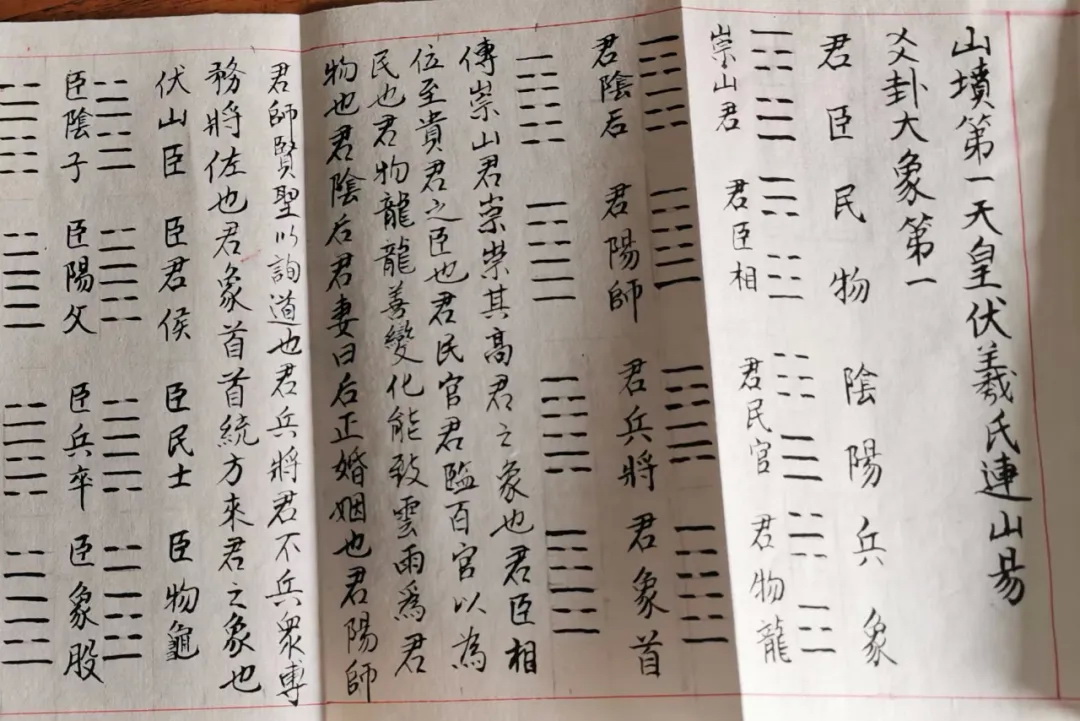 山墳第一天皇伏羲氏連山易
爻卦大象第一
君臣民物陰陽兵象
崇山君 君臣相 君民官 君物龍
君陰后 君陽師 君兵將 君象首
傳崇山君崇崇其高君之象也君臣相
位至貴君之臣也君民官君臨百官以為
民也君物龍龍善變化能致雲雨為君
物也君陰后君妻曰后正婚姻也君陽師
君師賢聖以詢道也君兵將君不兵眾專
務將佐也君象首首統方來君之象也
伏山臣 臣君侯 臣民士 臣物龜
臣陰子 臣陽父 臣兵卒 臣象股